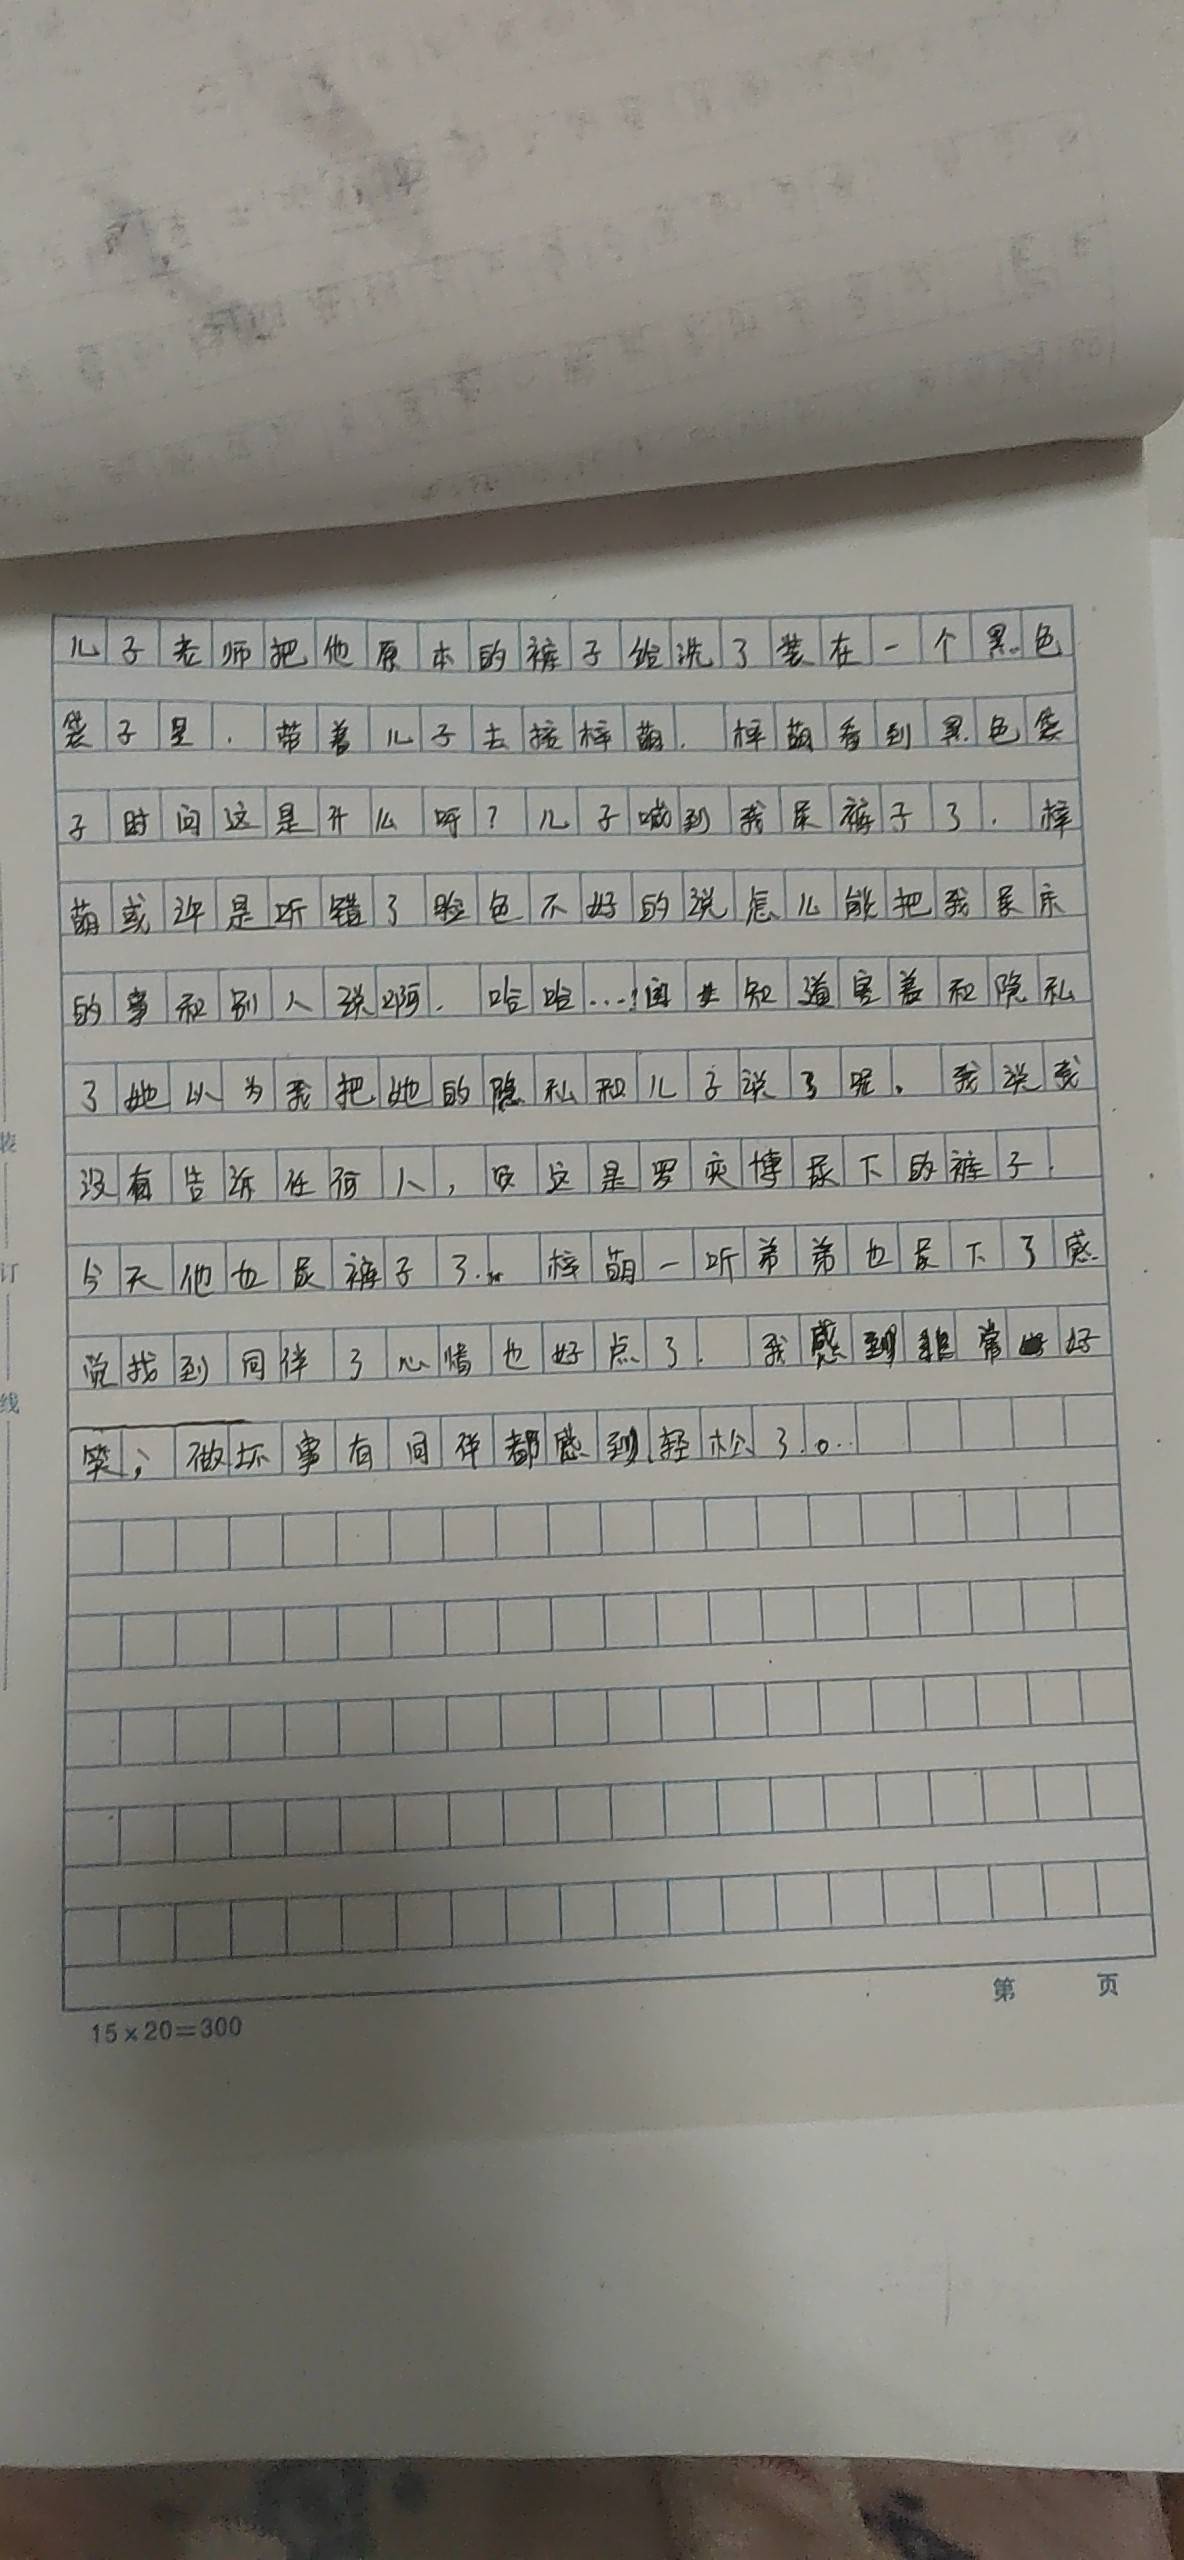 儿子老师把他原本的裤子给洗了装在一个黑色
袋子里.带着儿子去接梓萌.梓萌看到黑色袋
子时问这是什么呀?儿子喊到我尿裤子了.梓
萌或许是听错了脸色不好的说怎么能把我尿床
的事和别人说啊.哈哈...!闺女知道害羞和隐私
了她以为我把她的隐私和儿子说了呢.我说我
没有告诉任何人,这是罗奕博尿下的裤子.
今天他也尿裤子了..梓萌一听弟弟也尿下了感
觉找到同伴了心情也好点了.我感到非常好
笑;做坏事有同伴都感到轻松了。
装
订
线
15×20=300
第 页